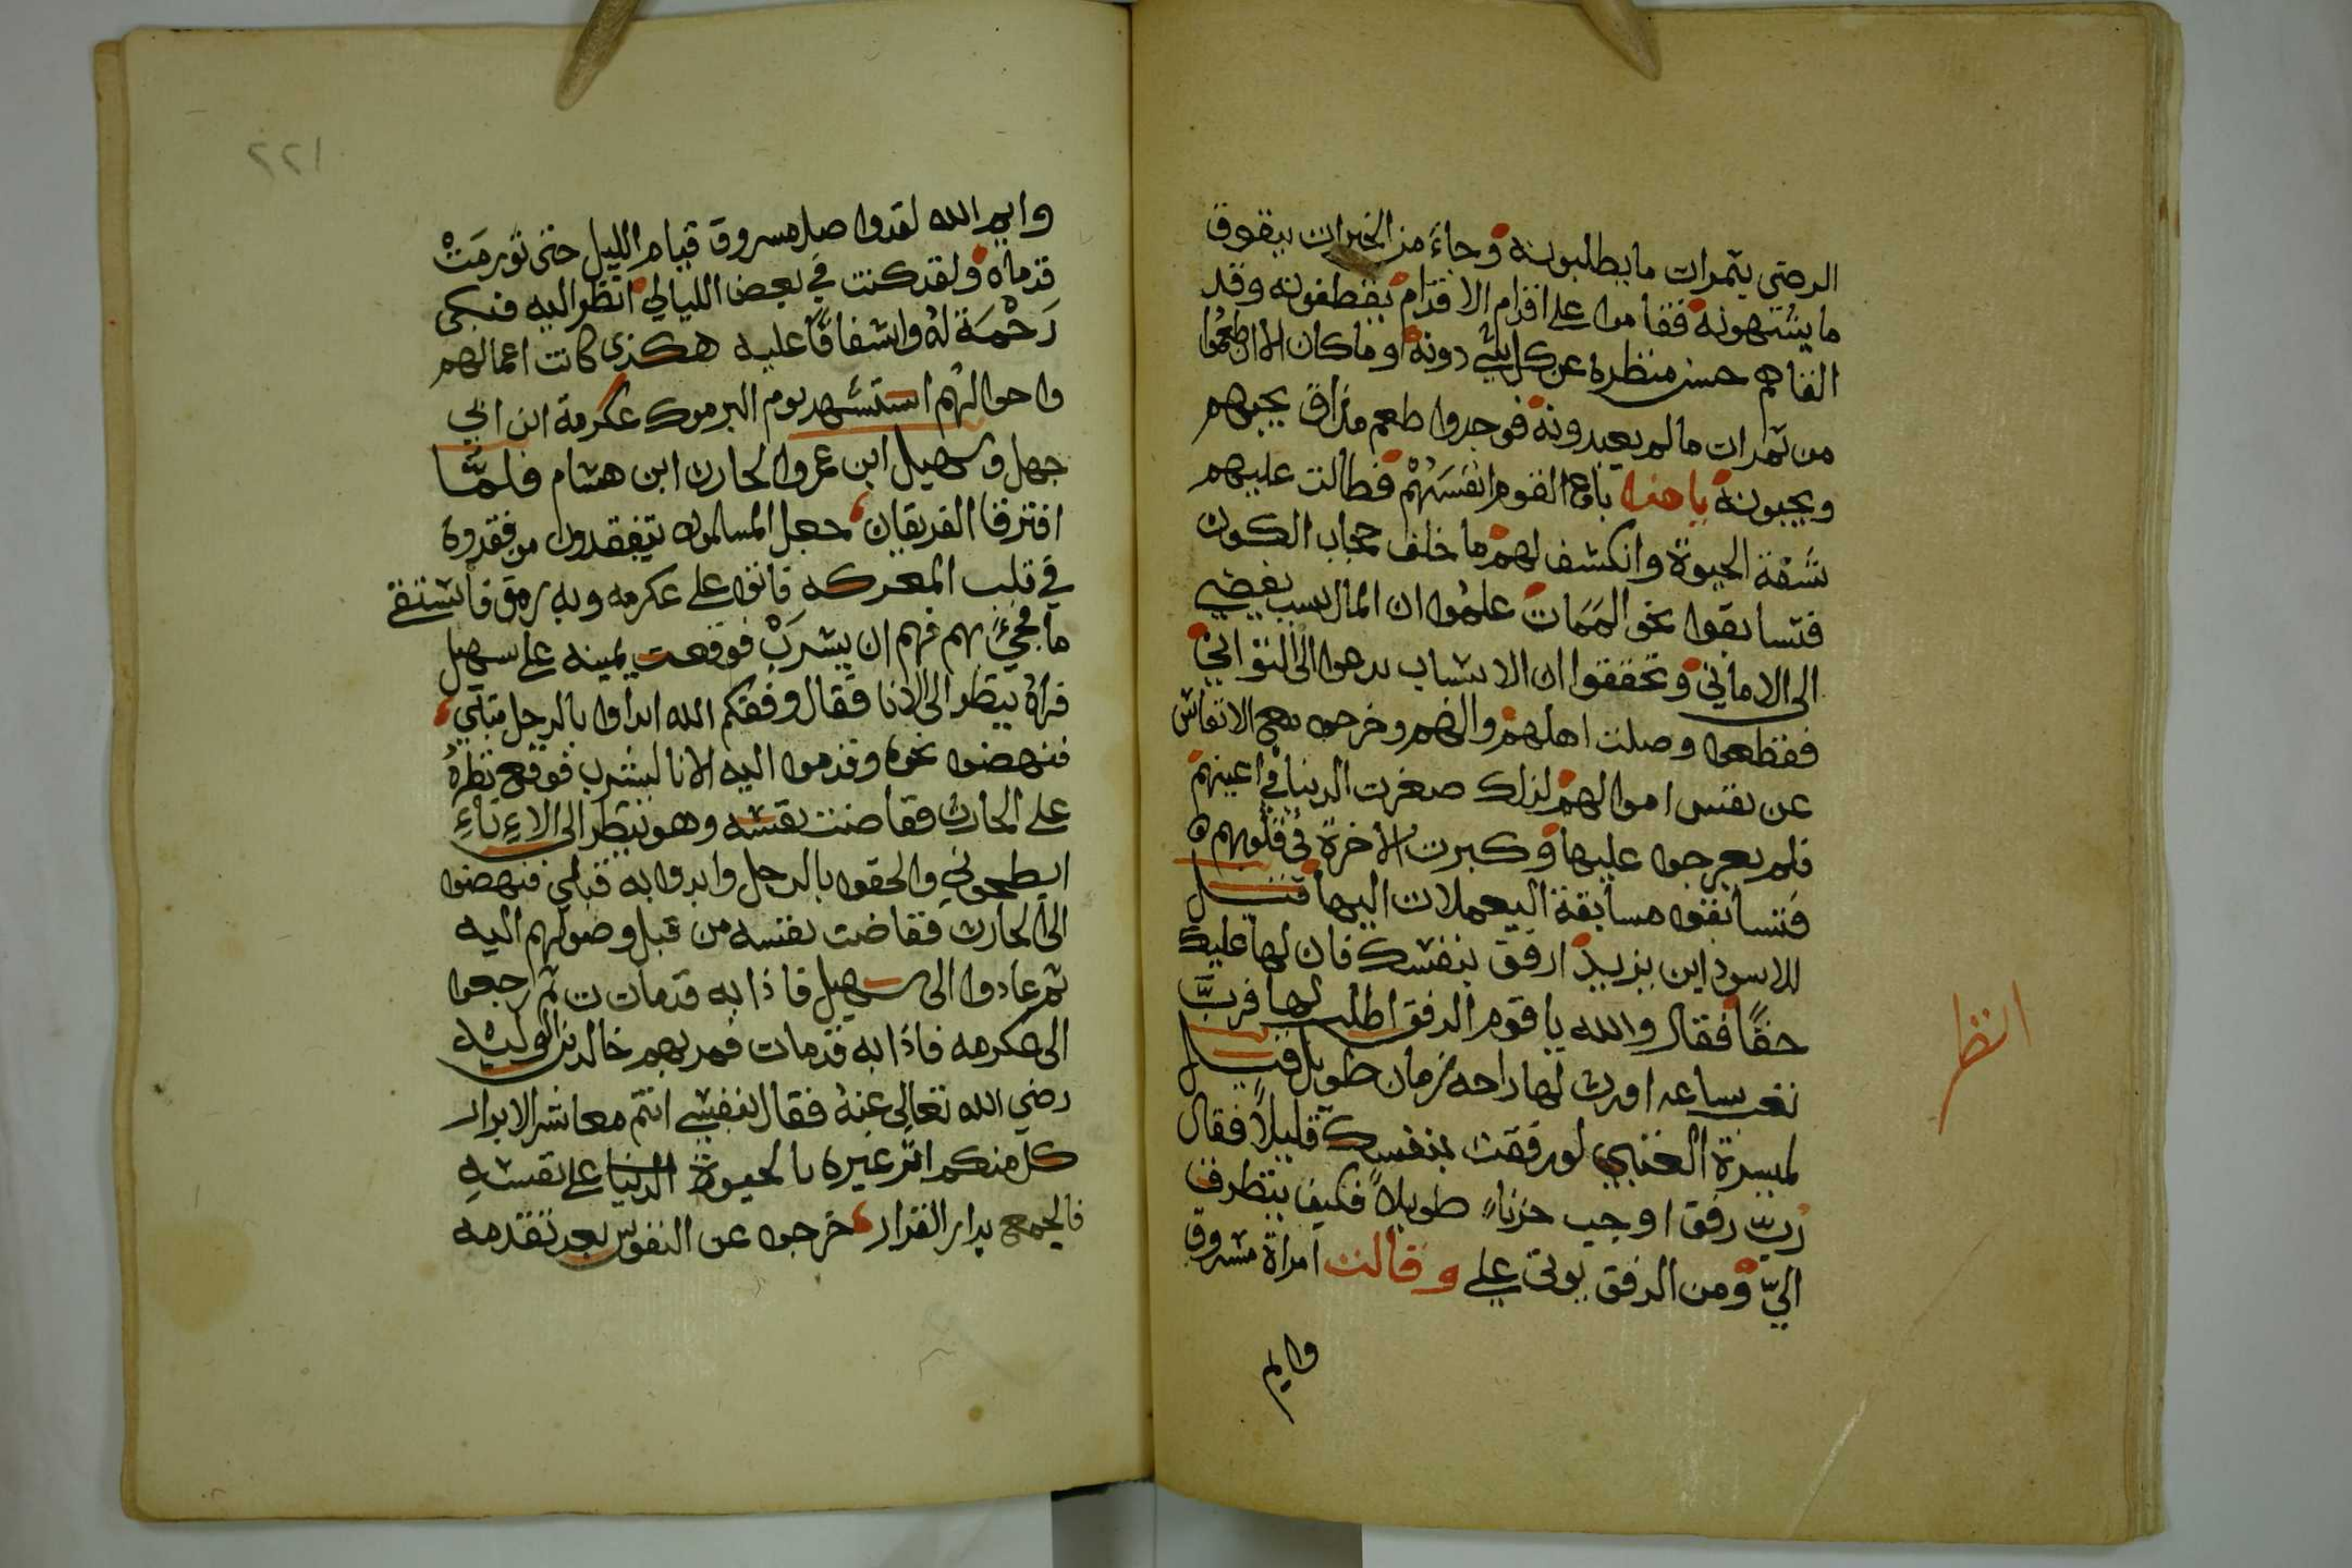 الرضى بثمرات ما يطلبونه وجاء من الخيرات بيقوق
ما يشتهونه فقاموا على اقدام الاقدام يقطفونه وقد
الفاهم حسن منظره عن كل شي دونه وماكان الا ان طعموا
من ثمرات مالم يعبدونه فوجدوا طعم مذاق يحبهم
ويحبونه يا هذا باع القوم انفسهم فطالت عليهم
شقة الحيوة وانكشف لهم ما خلف حجاب الكون
فتسابقوا نحو الممات علموا ان المال بسبب يفضي
الى الاماني وتحققوا ان الانساب يدعوا الى التواني
فقطعوا وصلت اهلهم والهم وخرجوا مع الانفاس
عن نفس اموالهم لذلك صغرت الدنيا في اعينهم
فلم يعرجوا عليها وكبرت الاخرة في قلوبهم
فتسابقوا مسابقة اليعملات اليها قيل
للاسود ابن يزيد ارفق بنفسك فان لها عليك
حقا فقال والله يا قوم الرفق اطلب لها فرب
تعب ساعه اورث لها راحه زمان طويل قيل
لميسرة العنبي لو رفقت بنفسك قليلا فقال
رب رفق اوجب حزنا طويلا فكيف يتطرف
الي ومن الرفق يوتى علي وقالت امراة مسروق
وايم
انظر
٢٢١
وايم الله لقد واصل مسروق قيام الليل حتى تورمت
قدماه ولقد كنت في بعض الليالي انظر اليه فنبكى
رحمة له واشفاقا عليه هكذى كانت اعمالهم
واحوالهم استشهد يوم اليرموك عكرمة ابن ابي
جهل وسهيل ابن عمرو الحارث ابن هشام فلما
افترقا الفريقان جعل المسلمون يتفقدون من فقدوه
في قلب المعركه فاتوا على عكرمه وبه رمق فاستسقى
ما فجئ بهم فهم ان يشرب فوقعت يمينه على سهيل
فراه ينظر الى الانا فقال وفقكم الله ابداوا بالرجل قبلي
فنهضوا نحوه وقدموا اليه الانا ليشرب فوقع نظره
على الحارث ففاضت نفسه وهو ينظر الى الاء ناء
ايطحوني والحقوا بالرجل وابدوا به قبلي فنهضوا
الى الحارث ففاضت نفسه من قبل وصولهم اليه
ثم عادوا الى سهيل فاذا به قدمات ت ثم رجعوا
الى عكرمه فاذا به قدمات فمر بهم خالد بن الوليد
رضي الله تعالى عنه فقال بنفسي انتم معاشر الابرار
كل منكم اثر غيره بالحيوة الدنيا على نفسه
فالجمع بدار القرار خرجوا عن النفوس بعد تقدمه